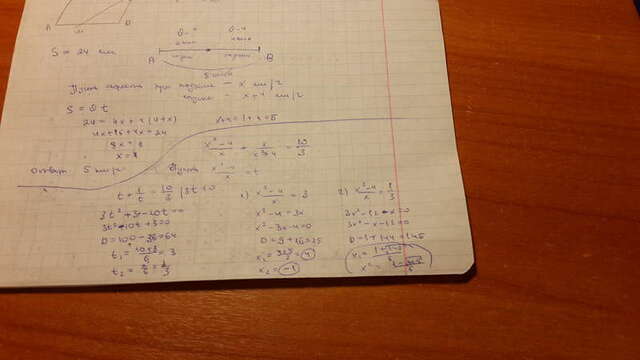 A м D
S = 24 км
A B
5 мин
Пусть скорость при подъеме — x км/г
спуске — x+4 км/г
S = υ t
24 = 4x + 4(4+x)
4x+16+4x = 24
8x = 8
x = 1
x+4 = 1+4 = 5
Ответ 5 км/г
x²-4/x + x/x²-4 = 10/3
Пусть x²-4/x = t
t + 1/t = 10/3 | 3t ≠ 0
3t² + 3 - 10t = 0
3t² - 10t + 3 = 0
D = 100 - 36 = 64
t₁ = 10+8/6 = 3
t₂ = 2/6 = 1/3
1) x²-4/x = 3
x² - 4 = 3x
x² - 3x - 4 = 0
D = 9 + 16 = 25
x₁ = 3+5/2 = 4
x₂ = -1
2) x²-4/x = 1/3
3x² - 12 - x = 0
3x² - x - 12 = 0
D = 1 + 144 = 145